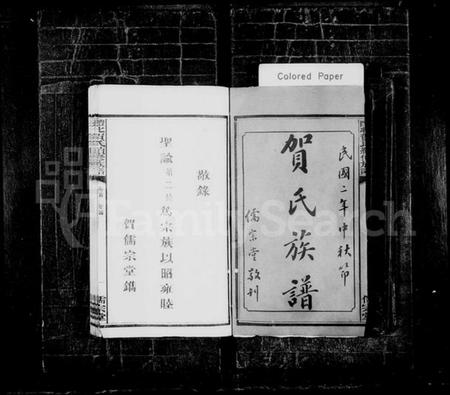 Colored Paper
民國二年中秋節
賀氏族譜
儒宗堂敬刊
敬錄
聖諭第二條篤宗族以昭雍睦
賀儒宗堂鐫
FamilySearch